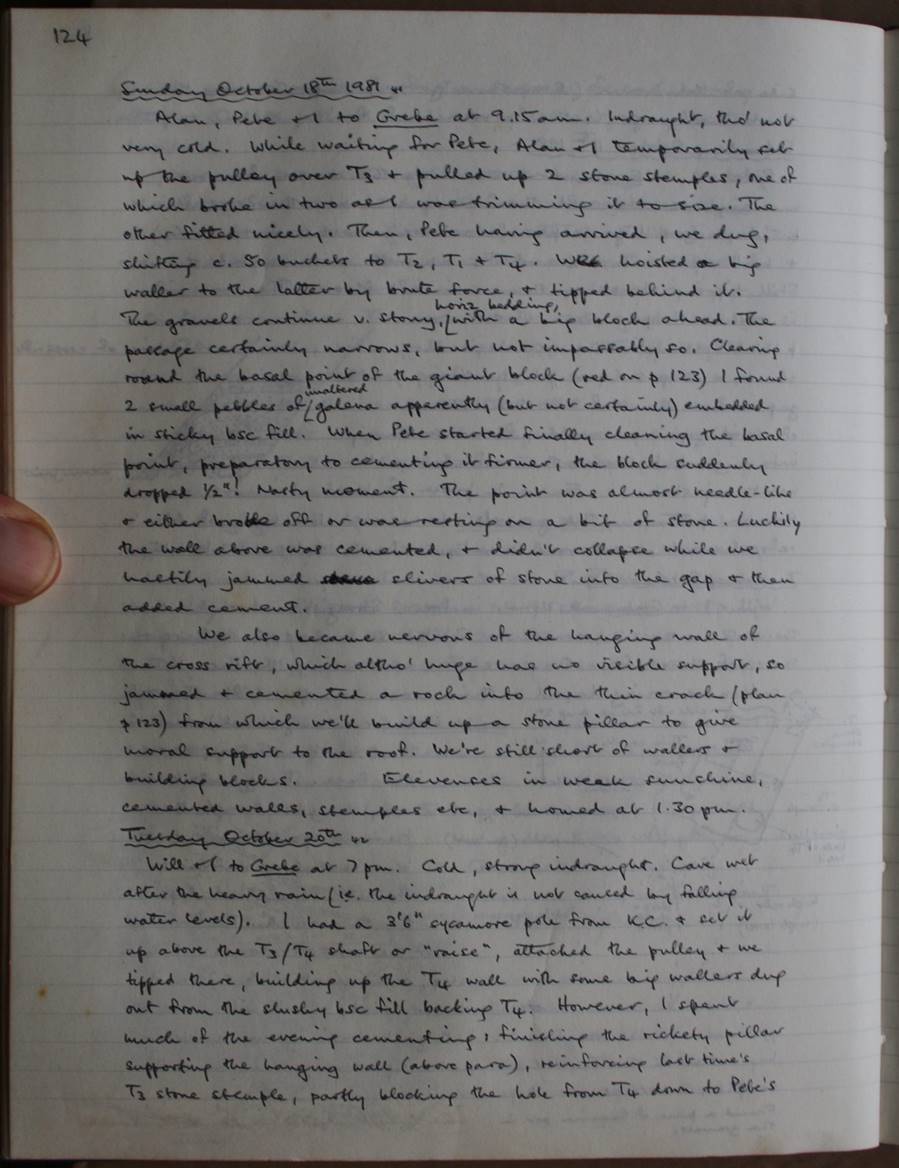 124
Sunday October 18th 1981 41
Alan, Pete + I to Grebe at 9.15am. Indraught, tho' not
very cold. While waiting for Pete, Alan + I temporarily set
up the pulley over T3 + pulled up 2 stone stemples, one of
which broke in two as I was trimming it to size. The
other fitted nicely. Then, Pete having arrived, we dug,
shifting c. 50 buckets to T2, T1 + T4. We hoisted a big
waller to the latter by brute force, + tipped behind it.
horiz bedding,
The gravels continue v. stony, with a big block ahead. The
passage certainly narrows, but not impassably so. Clearing
round the basal point of the giant block (red on p 123) I found
unaltered
2 small pebbles of galena apparently (but not certainly) embedded
in sticky bsc fill. When Pete started finally cleaning the basal
point, preparatory to cementing it firmer, the block suddenly
dropped 1/2"! Nasty moment. The point was almost needle-like
+ either broke off or was resting on a bit of stone. Luckily
the wall above was cemented, + didn't collapse while we
hastily jammed slivers of stone into the gap + then
added cement.
We also became nervous of the hanging wall of
the cross rift, which altho' huge has no visible support, so
jammed + cemented a rock into the thin crack (plan
p 123) from which we'll build up a stone pillar to give
moral support to the roof. We're still short of wallers +
building blocks. Elevenses in weak sunshine,
cemented walls, stemples etc, + homed at 1.30pm.
Tuesday October 20th 42
Will + I to Grebe at 7pm. Cold, strong indraught. Cave wet
after the heavy rain (ie. the indraught is not caused by falling
water levels). I had a 3'6" sycamore pole from K.C. + set it
up above the T3/T4 shaft or "raise", attached the pulley + we
tipped there, building up the T4 wall with some big wallers dug
out from the slushy bsc fill backing T4. However, I spent
much of the evening cementing; finishing the rickety pillar
supporting the hanging wall (above para), reinforcing last time's
T3 stone stemple, partly blocking the hole from T4 down to Pete's